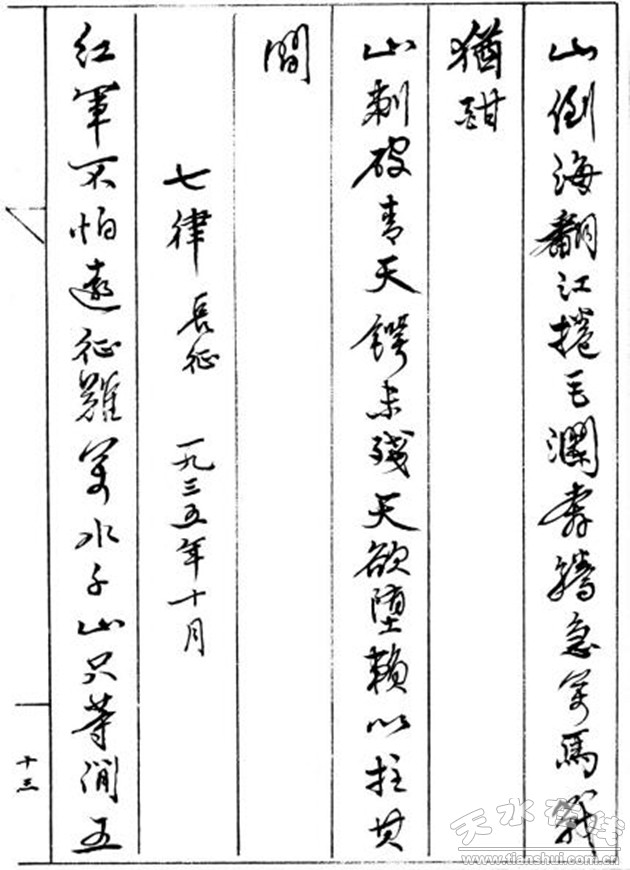 山倒海翻江捲巨瀾奔騰急萬馬戰
猶酣
山刺破青天鍔未殘天欲墮賴以拄其
間
七律 長征 一九三五年十月
紅軍不怕遠征難萬水千山只等閒五
十三
天水在线
www.tianshui.com.cn